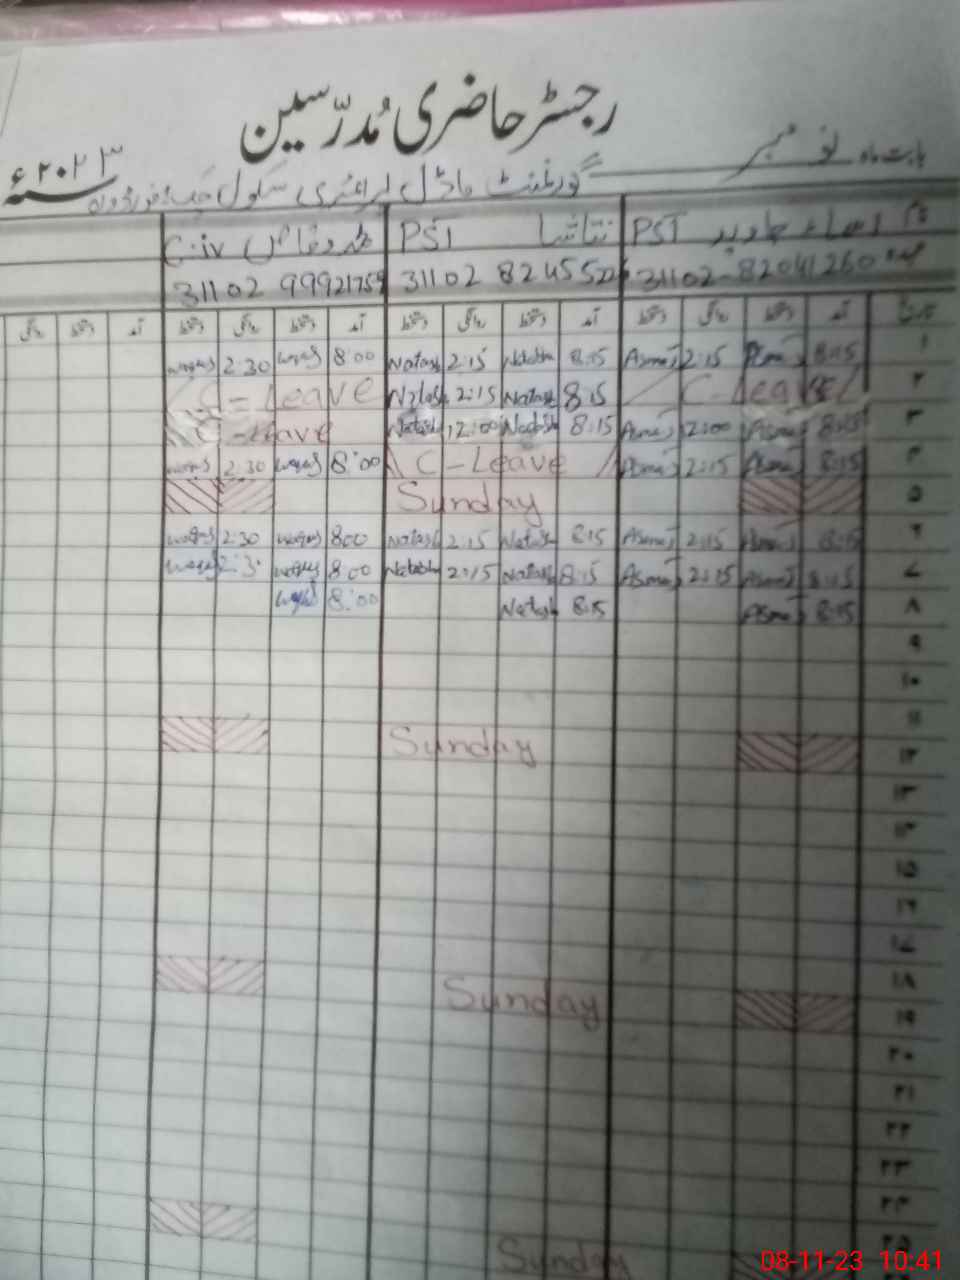 رجسٹر حاضری مُدرّسین
بابت ماہ نومبر ۲۰۲۳ سنہ ء
گورنمنٹ ماڈل پرائمری سکول
نام اسماء جاوید PST نتاشا PST محمد وقاص C-iv
عہدہ 31102-82041260 31102 31102 9992175
تاریخ آمد دستخط روانگی دستخط آمد دستخط روانگی دستخط آمد دستخط روانگی دستخط آمد دستخط روانگی
۱ 8:15 Asma 2:15 Asma 8:15 Natasha 2:15 Natash 8:00 waqas 2:30 waqas
۲ C-Leave 8:15 Natash 2:15 Natash C-Leave
۳ 8:15 Asma 12:00 Asma 8:15 Natash 12:00 Natash C-Leave
۴ 8:15 Asma 2:15 Asma C-Leave 8:00 waqas 2:30 waqas
۵ Sunday
۶ 8:15 Asma 2:15 Asma 8:15 Natash 2:15 Natash 8:00 waqas 2:30 waqas
۷ 8:15 Asma 2:15 Asma 8:15 Natash 2:15 Natash 8:00 waqas 2:3 waqas
۸ 8:15 Asma 8:15 Natash 8:00 waqas
۹
۱۰
۱۱
۱۲ Sunday
۱۳
۱۴
۱۵
۱۶
۱۷
۱۸
۱۹ Sunday
۲۰
۲۱
۲۲
۲۳
۲۴
۲۵
Sunday
08-11-23 10:41